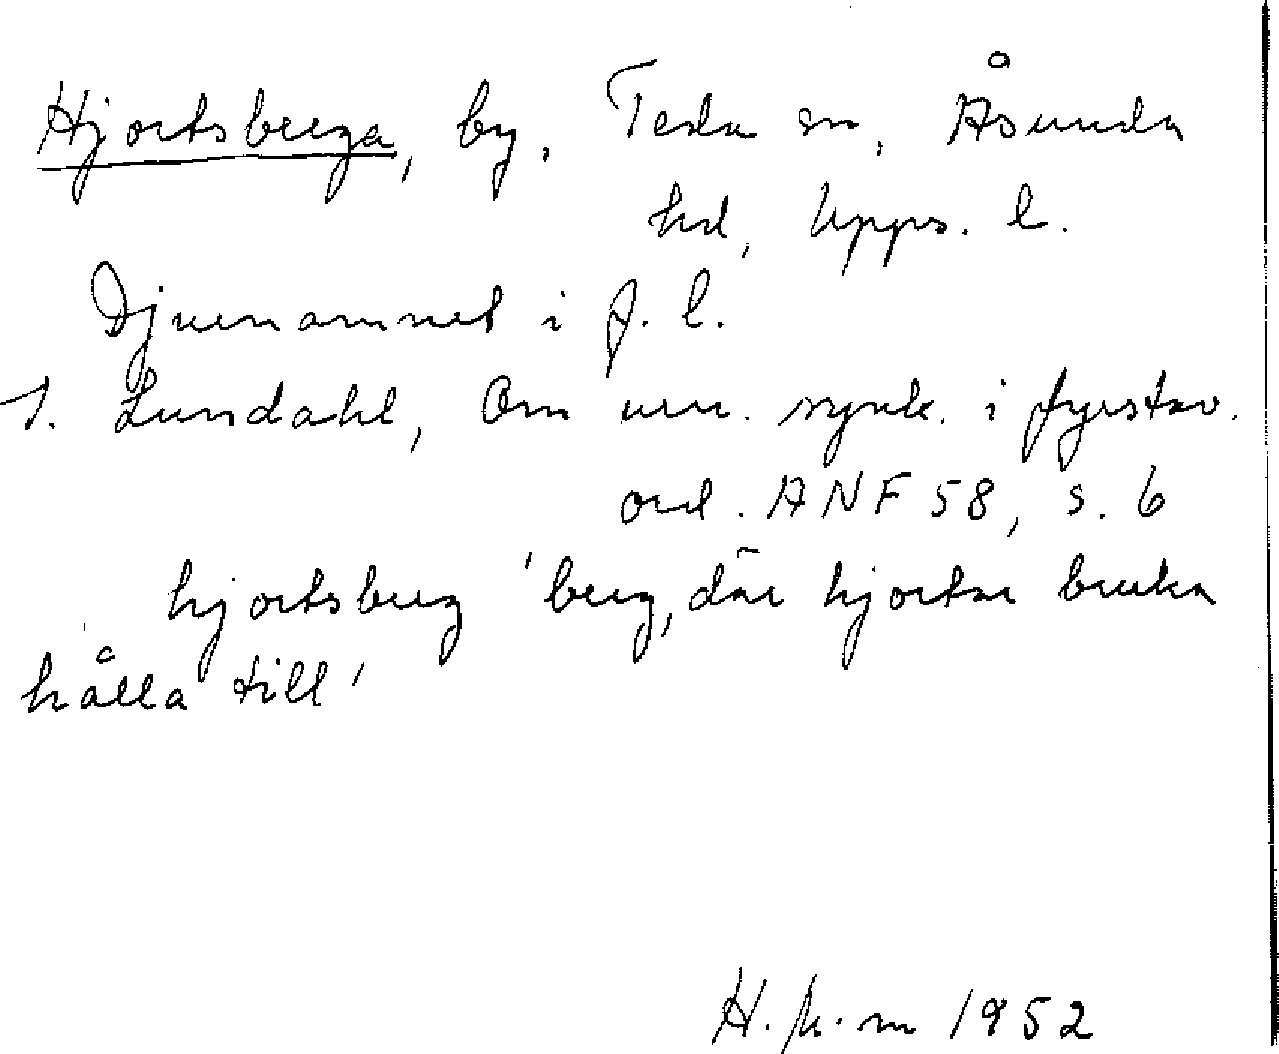 Hjortsberga, by, Teda sn, Åsunda
hd, Upps. l.
Djurnamnet i f. l.
I. Lundahl, Om urn. synk. i fyrstav.
ord. ANF 58, s. 6
hjortsberg 'berg, där hjortar bruka
hålla till'
1952